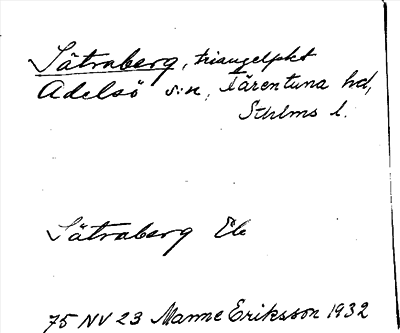 Sätraberg, triangelpkt
Adelsö s:n, Färentuna hd,
Sthlms l.
Sätraberg Ek
75 NV 23 Manne Eriksson 1932